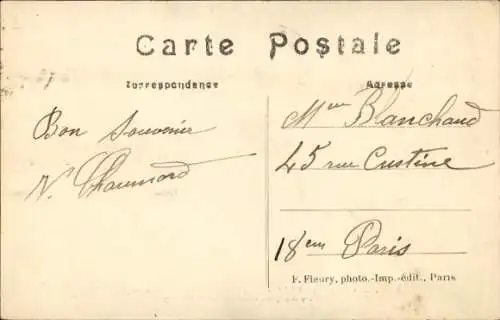 Carte Postale
Correspondance
Adresse
Bon Souvenir
V. Chaumard
Mme Blanchaud
45 rue Custine
18em Paris
F. Fleury, photo.-Imp.-édit., Paris